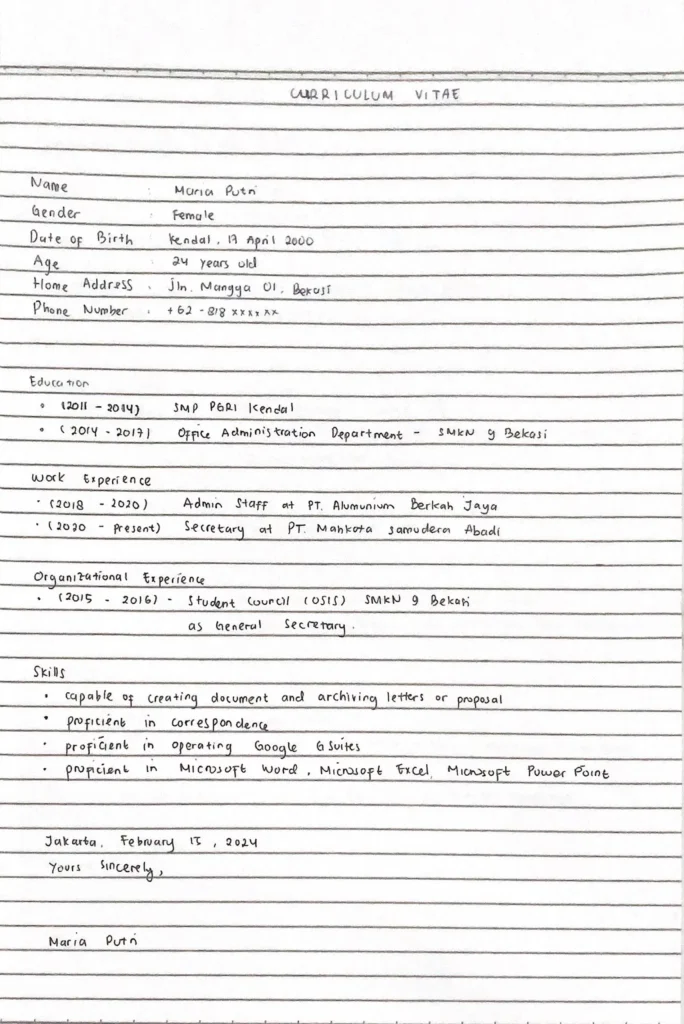 CURRICULUM VITAE
Name : Maria Putri
Gender : Female
Date of Birth Kendal, 17 April 2000
Age : 24 years old
Home Address : Jln. Mangga 01, Bekasi
Phone Number : +62 - 818 xxxx xx
Education
• (2011 - 2014) SMP PGRI Kendal
• (2014 - 2017) Office Administration Department - SMKN 9 Bekasi
Work Experience
• (2018 - 2020) Admin Staff at PT. Alumunium Berkah Jaya
• (2020 - Present) Secretary at PT. Mahkota Samudera Abadi
Organizational Experience
• (2015 - 2016) - Student Council (OSIS) SMKN 9 Bekasi
as General Secretary.
Skills
• capable of creating document and archiving letters or proposal
• proficient in correspondence
• proficient in operating Google G Suites
• proficient in Microsoft Word, Microsoft Excel, Microsoft Power Point
Jakarta, February , 2024
Yours Sincerely,
Maria Putri